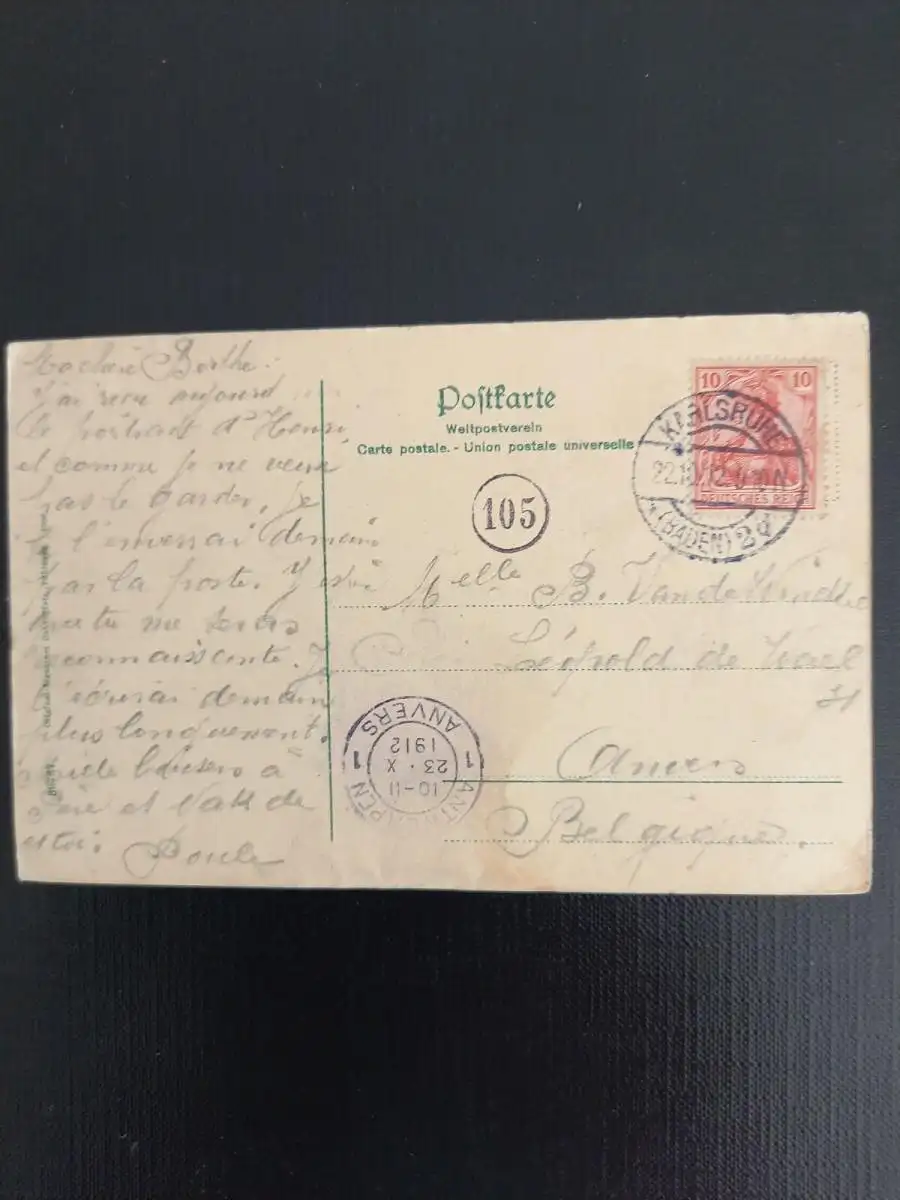 Ma chère Berthe.
J'ai reçu aujourd
le portrait d'Henri,
et comme je ne veux
pas le garder, je
l'enverrai demain
par la poste.
que tu me seras
reconnaissante. Je
t'écrirai demain
plus longuement.
baisers à
et
toi.
Postkarte
Weltpostverein
Carte postale. - Union postale universelle
105
10 10
DEUTSCHES REICH
KARLSRUHE
22.10.12
(BADEN)
Melle B. Van de
Léopold de Wael
Anvers
Belgique.
ANTWERPEN 1
10-11
23 · X
1912
1 ANVERS